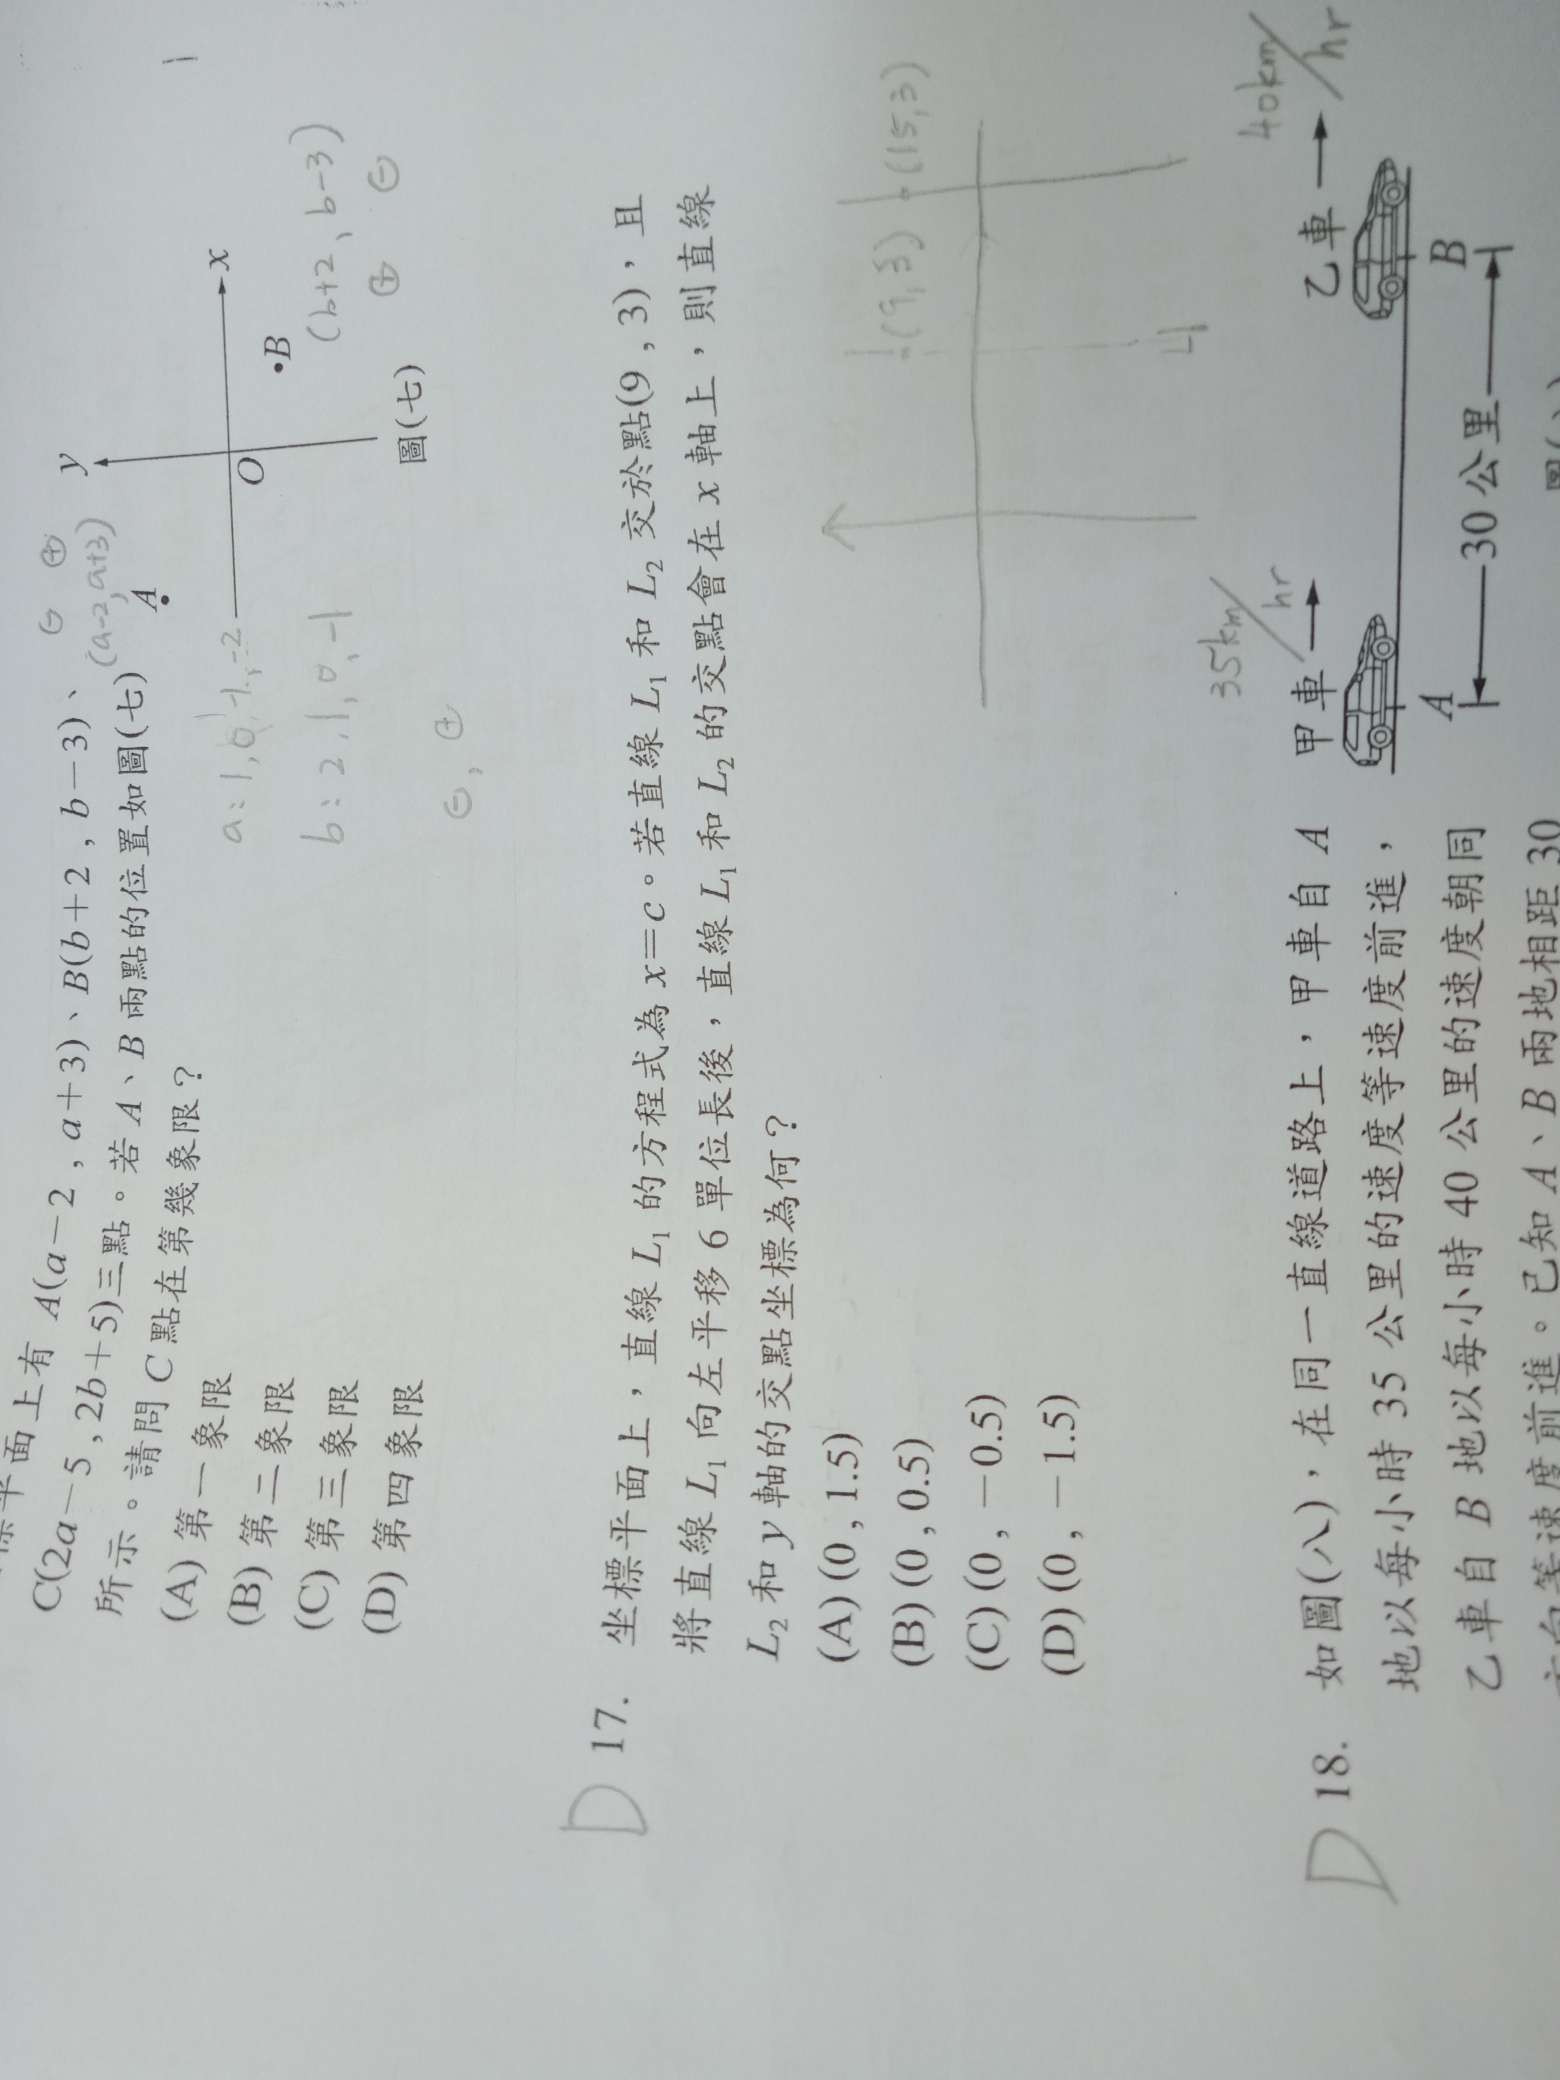 標平面上有 A(a-2 , a+3)、B(b+2 , b-3)、
C(2a-5 , 2b+5)三點。若 A、B 兩點的位置如圖(七)
所示。請問 C 點在第幾象限?
(A) 第一象限
(B) 第二象限
(C) 第三象限
(D) 第四象限
⊖ ⊕
(a-2, a+3)
A
y
x
O
B
(b+2、b-3)
⊕ ⊖
圖(七)
b: 2, 1, 0, -1
⊖, ⊕
D 17. 坐標平面上,直線 L₁ 的方程式為 x=c。若直線 L₁ 和 L₂ 交於點(9 , 3),且
將直線 L₁ 向左平移 6 單位長後,直線 L₁ 和 L₂ 的交點會在 x 軸上,則直線
L₂ 和 y 軸的交點坐標為何?
(A) (0 , 1.5)
(B) (0 , 0.5)
(C) (0 , -0.5)
(D) (0 , -1.5)
(9, 3)
(15, 3)
D 18. 如圖(八),在同一直線道路上,甲車自 A
地以每小時 35 公里的速度等速度前進,
乙車自 B 地以每小時 40 公里的速度朝同
方向等速度前進。已知 A、B 兩地相距 30
35km/hr
40km/hr
甲車
乙車
A
B
30 公里